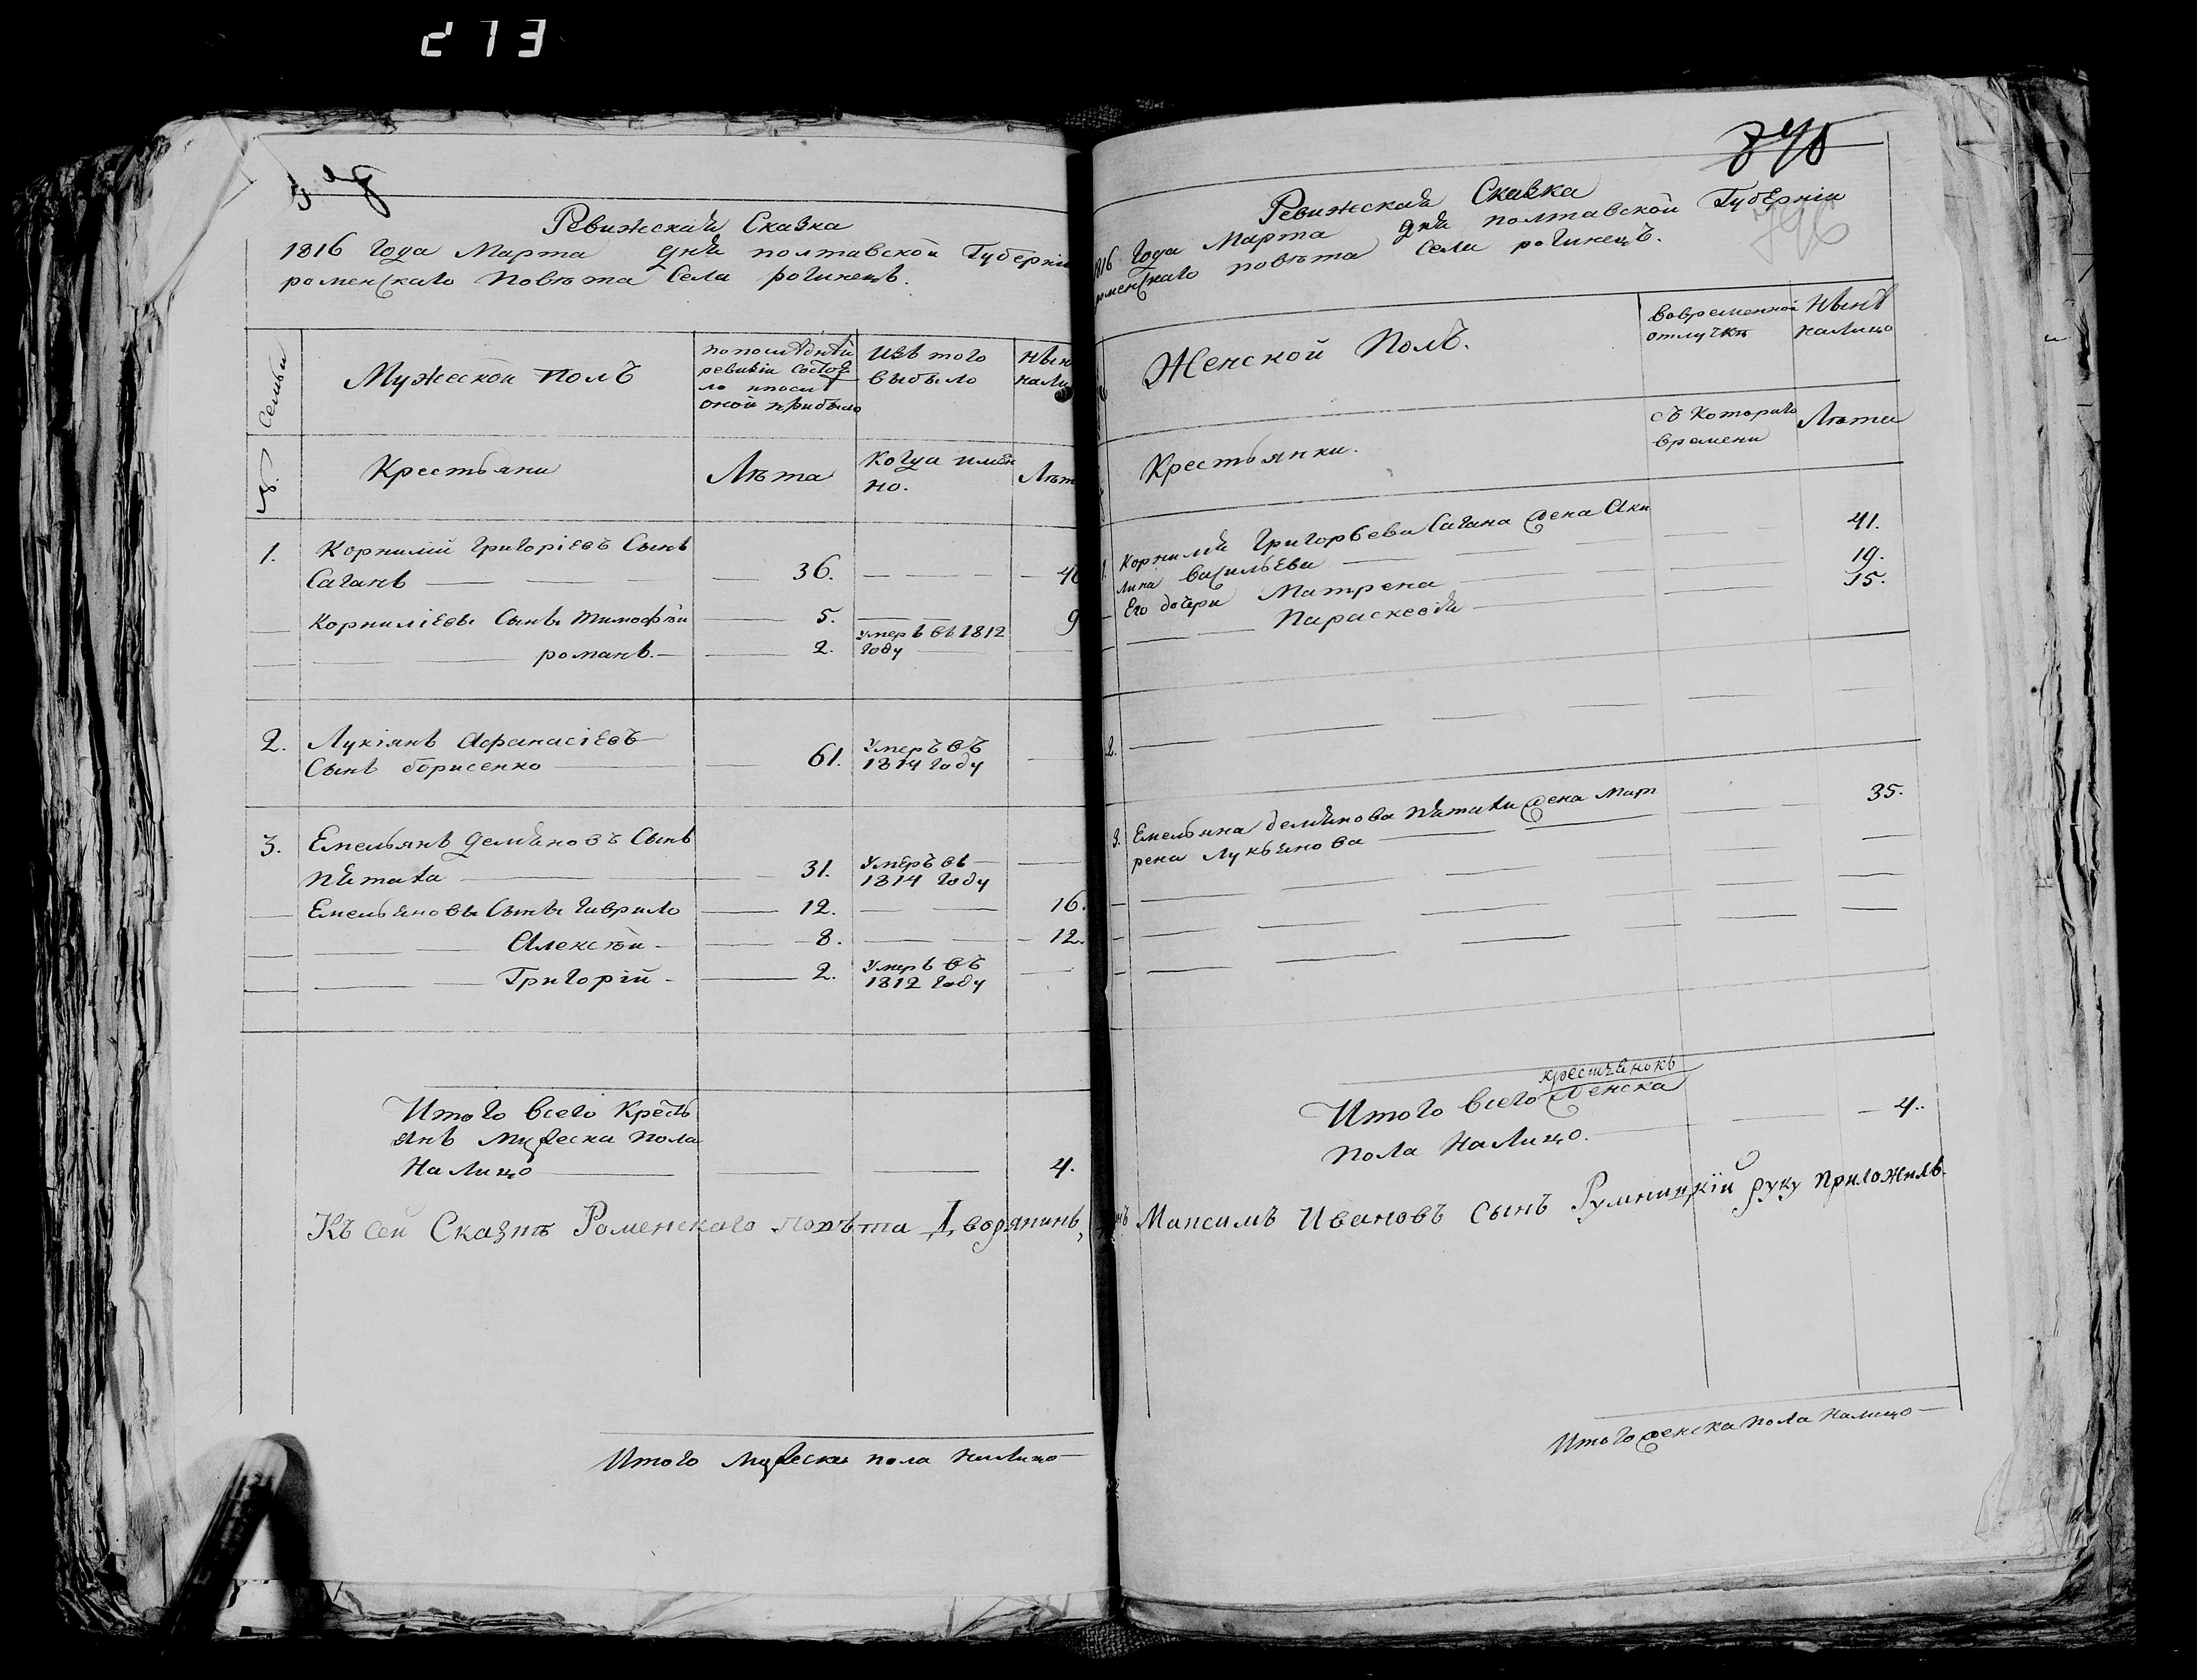 273
Ревижская Сказка
1816 года Марта дня полтавской Губерніи
роменскаго повѣта Села рогинецъ.
№ Семьи
Мужеской полъ
попослѣдней ревизіи состояло ипослѣ оной прибыло
Изъ того выбыло
Нынѣ нали
Крестьяни
Лѣта
Когда имѣнно.
Лѣт
1. Корнилій Григоріевъ Сынъ
Саганъ — 36. — 40
Корниліевы Сынъ Тимофѣй — 5. — 9
романъ. — 2. Умеръ въ 1812 году —
2. Лукіянъ Афанасіевъ
Сынъ борисенко — 61. Умеръ въ 1814 году —
3. Емельянъ демяновъ Сынъ
пятака — 31. Умеръ въ 1814 году —
Емельяновы Сынъ гаврило — 12. — 16.
Алексѣй — 8. — 12.
Григорій — 2. Умеръ въ 1812 году —
Итого всего Кресть
янъ мужеска пола
налицо — 4.
Къ сей Сказкѣ Роменскаго повѣта Дворянинъ,
Итого мужеска пола налицо
796
Ревижская Сказка
1816 года Марта дня полтавской Губерніи
роменскаго повѣта Села рогинецъ.
Женской Полъ.
Вовременной отлучкѣ
Нынѣ налицо
Крестьянки.
съ Котораго времени
Лѣта
1. Корнилія Григорьева Сагана жена Аку
лина васильева — 41.
Его дочери Матрена — 19.
Параскевія — 15.
2.
3. Емельяна демянова пятака жена Мат
рена Лукьянова — 35.
крестьянокъ
Итого всего женска
пола налицо. — 4.
Максимъ Ивановъ Сынъ Румницкій руку приложилъ.
Итого женска пола налицо